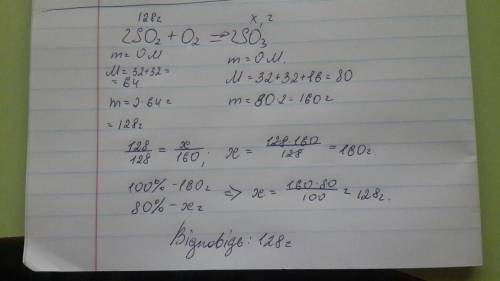 128г x, г
2SO₂ + O₂ ⇒ 2SO₃
m = ϑM m = ϑM.
M = 32+32= M = 32+32+16 = 80
= 64.
m = 2·64 = m = 80·2 = 160г
= 128г
128/128 = x/160; x = 128·160/128 = 160г.
100% - 160г
80% - xг ⇒ x = 160·80/100 = 128г.
Відповідь: 128г